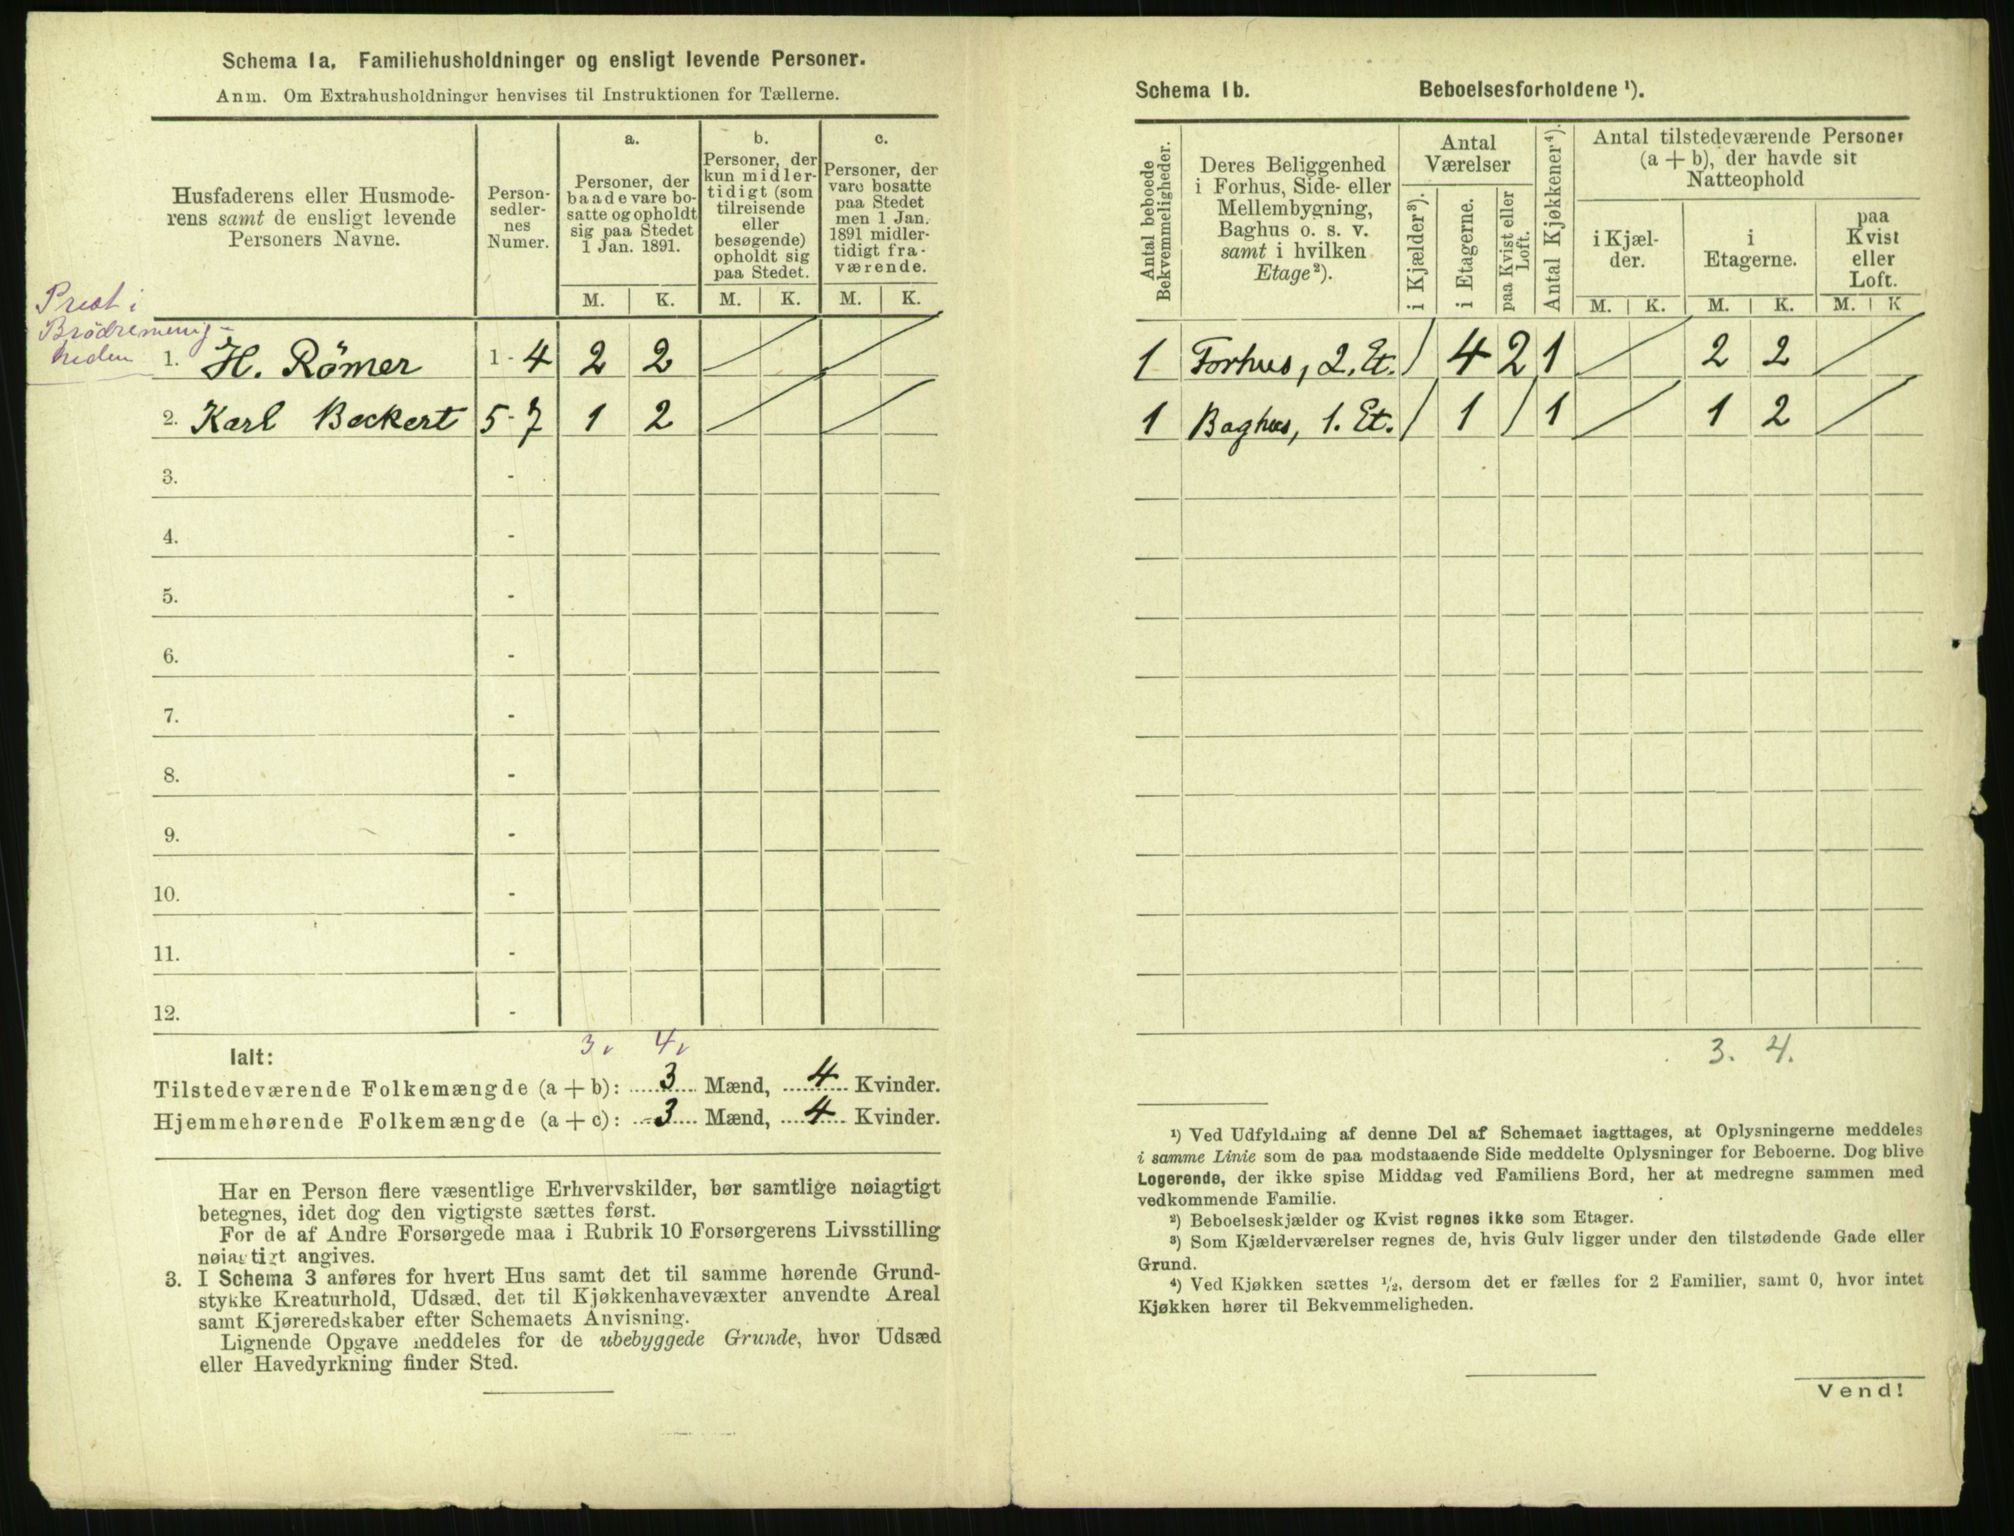 Schema 1a. Familiehusholdninger og ensligt levende Personer.
Anm. Om Extrahusholdninger henvises til Instruktionen for Tællerne.
Husfaderens eller Husmode-
rens samt de ensligt levende
Personers Navne.
Person-
sedler-
nes
Numer.
a.
Personer, der
baade vare bo-
satte og opholdt
sig paa Stedet
1 Jan. 1891.
b.
Personer, der
kun midler-
tidigt (som
tilreisende
eller
besøgende)
opholdt sig
paa Stedet.
c.
Personer, der
vare bosatte
paa Stedet
men 1 Jan.
1891 midler-
tidigt fra-
værende.
M. K. M. K. M. K.
Præst i
Brødremenig-
heden
1. H. Römer 1 - 4 2 2
2. Karl Beckert 5 - 7 1 2
3. -
4. -
5. -
6. -
7. -
8. -
9. -
10. -
11. -
12. -
3. 4.
Ialt:
Tilstedeværende Folkemængde (a + b): 3 Mænd, 4 Kvinder.
Hjemmehørende Folkemængde (a + c): 3 Mænd, 4 Kvinder.
Har en Person flere væsentlige Erhvervskilder, bør samtlige nøiagtigt
betegnes, idet dog den vigtigste sættes først.
For de af Andre Forsørgede maa i Rubrik 10 Forsørgerens Livsstilling
nøiagtigt angives.
3. I Schema 3 anføres for hvert Hus samt det til samme hørende Grund-
stykke Kreaturhold, Udsæd, det til Kjøkkenhavevæxter anvendte Areal
samt Kjøreredskaber efter Schemaets Anvisning.
Lignende Opgave meddeles for de ubebyggede Grunde, hvor Udsæd
eller Havedyrkning finder Sted.
Schema 1b. Beboelsesforholdene ¹).
Antal beboede
Bekvemmeligheder.
Deres Beliggenhed
i Forhus, Side- eller
Mellembygning,
Baghus o. s. v.
samt i hvilken
Etage ²).
Antal
Værelser
i Kjælder ³).
i Etagerne.
paa Kvist eller
Loft.
Antal Kjøkkener ⁴).
Antal tilstedeværende Personer
(a + b), der havde sit
Natteophold
i Kjæl-
der.
i
Etagerne.
paa
Kvist
eller
Loft.
M. K. M. K. M. K
1 Forhus, 2. Et. / 4 2 1 / 2 2 /
1 Baghus, 1. Et. / 1 / 1 / 1 2 /
3. 4.
¹) Ved Udfyldning af denne Del af Schemaet iagttages, at Oplysningerne meddeles
i samme Linie som de paa modstaaende Side meddelte Oplysninger for Beboerne. Dog blive
Logerende, der ikke spise Middag ved Familiens Bord, her at medregne sammen med
vedkommende Familie.
²) Beboelseskjælder og Kvist regnes ikke som Etager.
³) Som Kjælderværelser regnes de, hvis Gulv ligger under den tilstødende Gade eller
Grund.
⁴) Ved Kjøkken sættes ¹/₂, dersom det er fælles for 2 Familier, samt 0, hvor intet
Kjøkken hører til Bekvemmeligheden.
Vend!